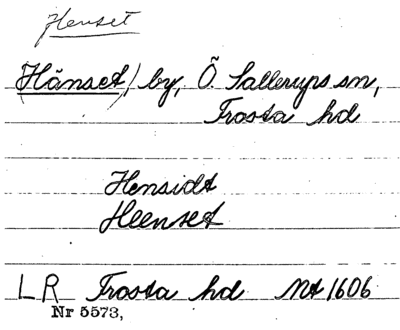 Henset
(Hänset), by, Ö. Sallerups sn,
Frosta hd
Hensidt
Heenset
LR Frosta hd Nt 1606
Nr 5573,